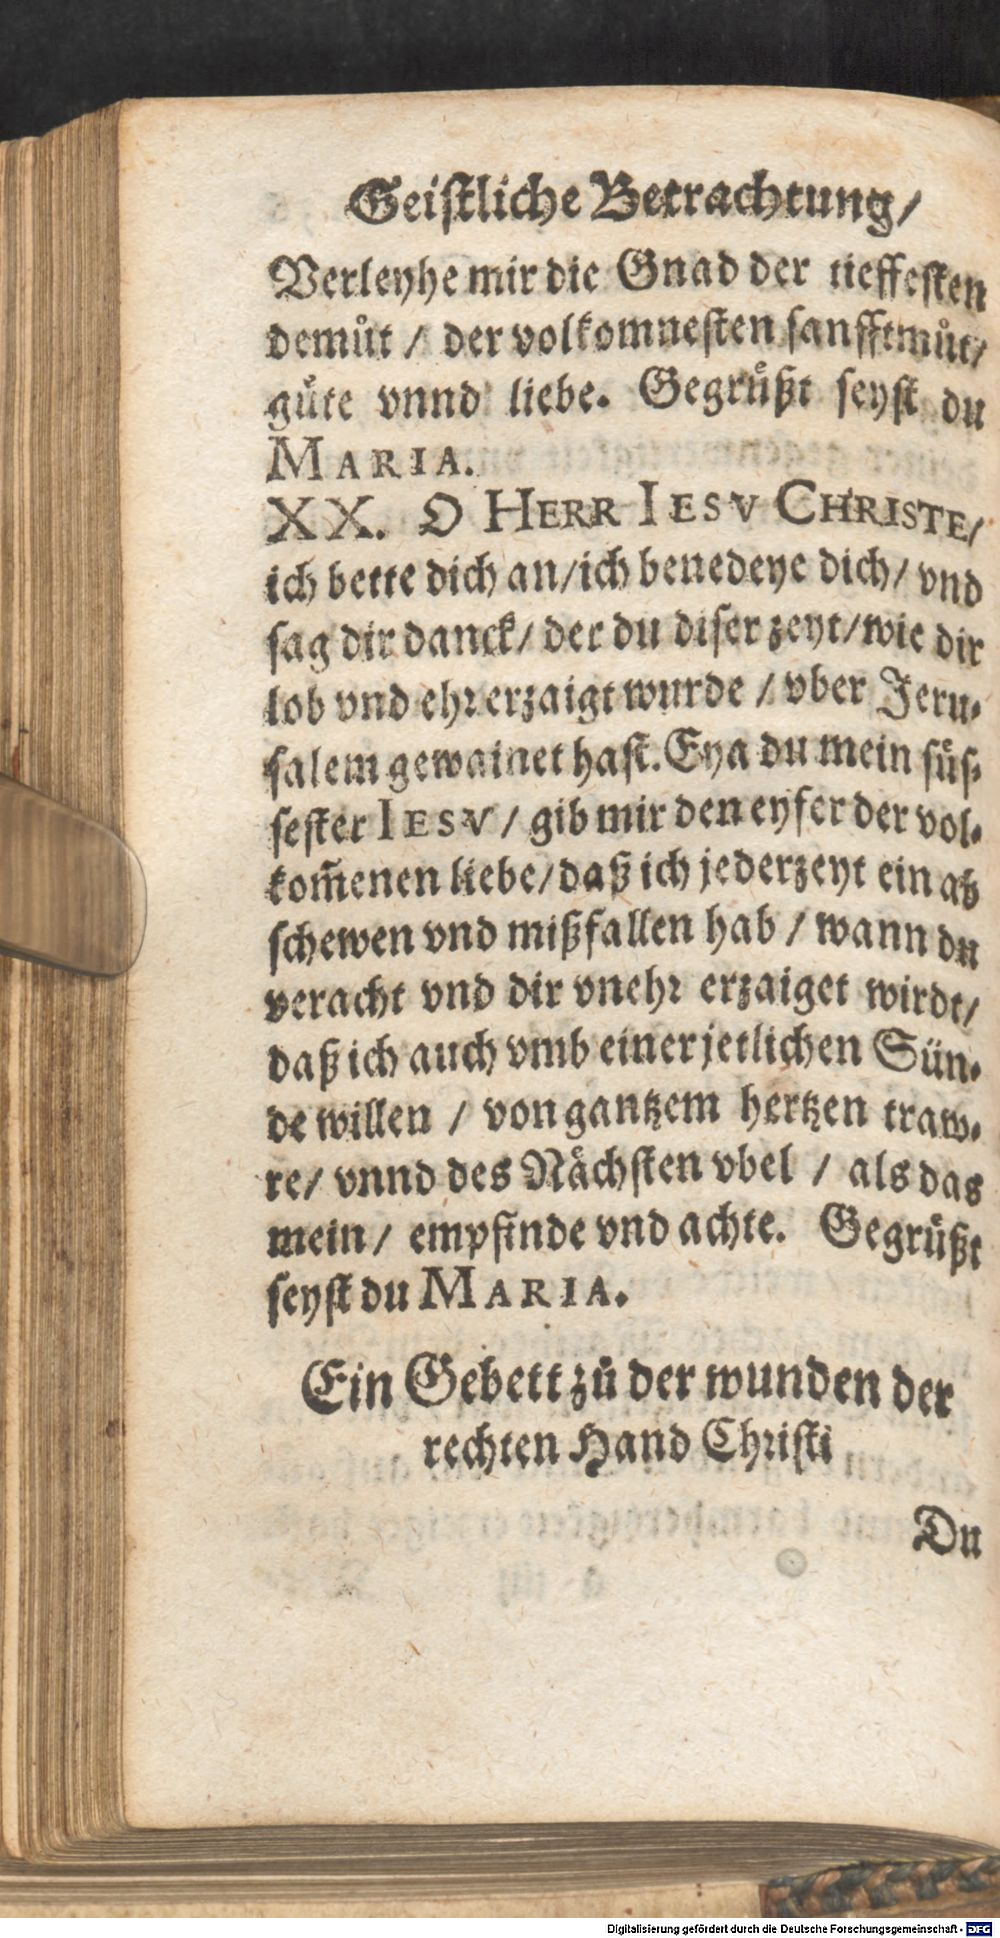 Geistliche Betrachtung/
Verleyhe mir die Gnad der tieffesten
demůt / der volkomnesten sanfftmůt/
gůte vnnd liebe. Gegrůßt seyst du
MARIA.
XX. O HERR IESV CHRISTE/
ich bette dich an/ich benedeye dich/ vnd
sag dir danck/ der du diser zeyt/wie dir
lob vnd ehr erzaigt wurde / vber Jeru-
salem gewainet hast. Eya du mein süs-
sester IESV / gib mir den eyfer der vol-
kom̃enen liebe/daß ich jederzeyt ein ab
schewen vnd mißfallen hab / wann du
veracht vnd dir vnehr erzaiget wirdt/
daß ich auch vmb einer jetlichen Sün-
de willen / von gantzem hertzen traw-
re/ vnnd des Nächsten vbel / als das
mein/ empfinde vnd achte. Gegrüßt
seyst du MARIA.
Ein Gebett zů der wunden der
rechten Hand Christi
Du
Digitalisierung gefördert durch die Deutsche Forschungsgemeinschaft - DFG